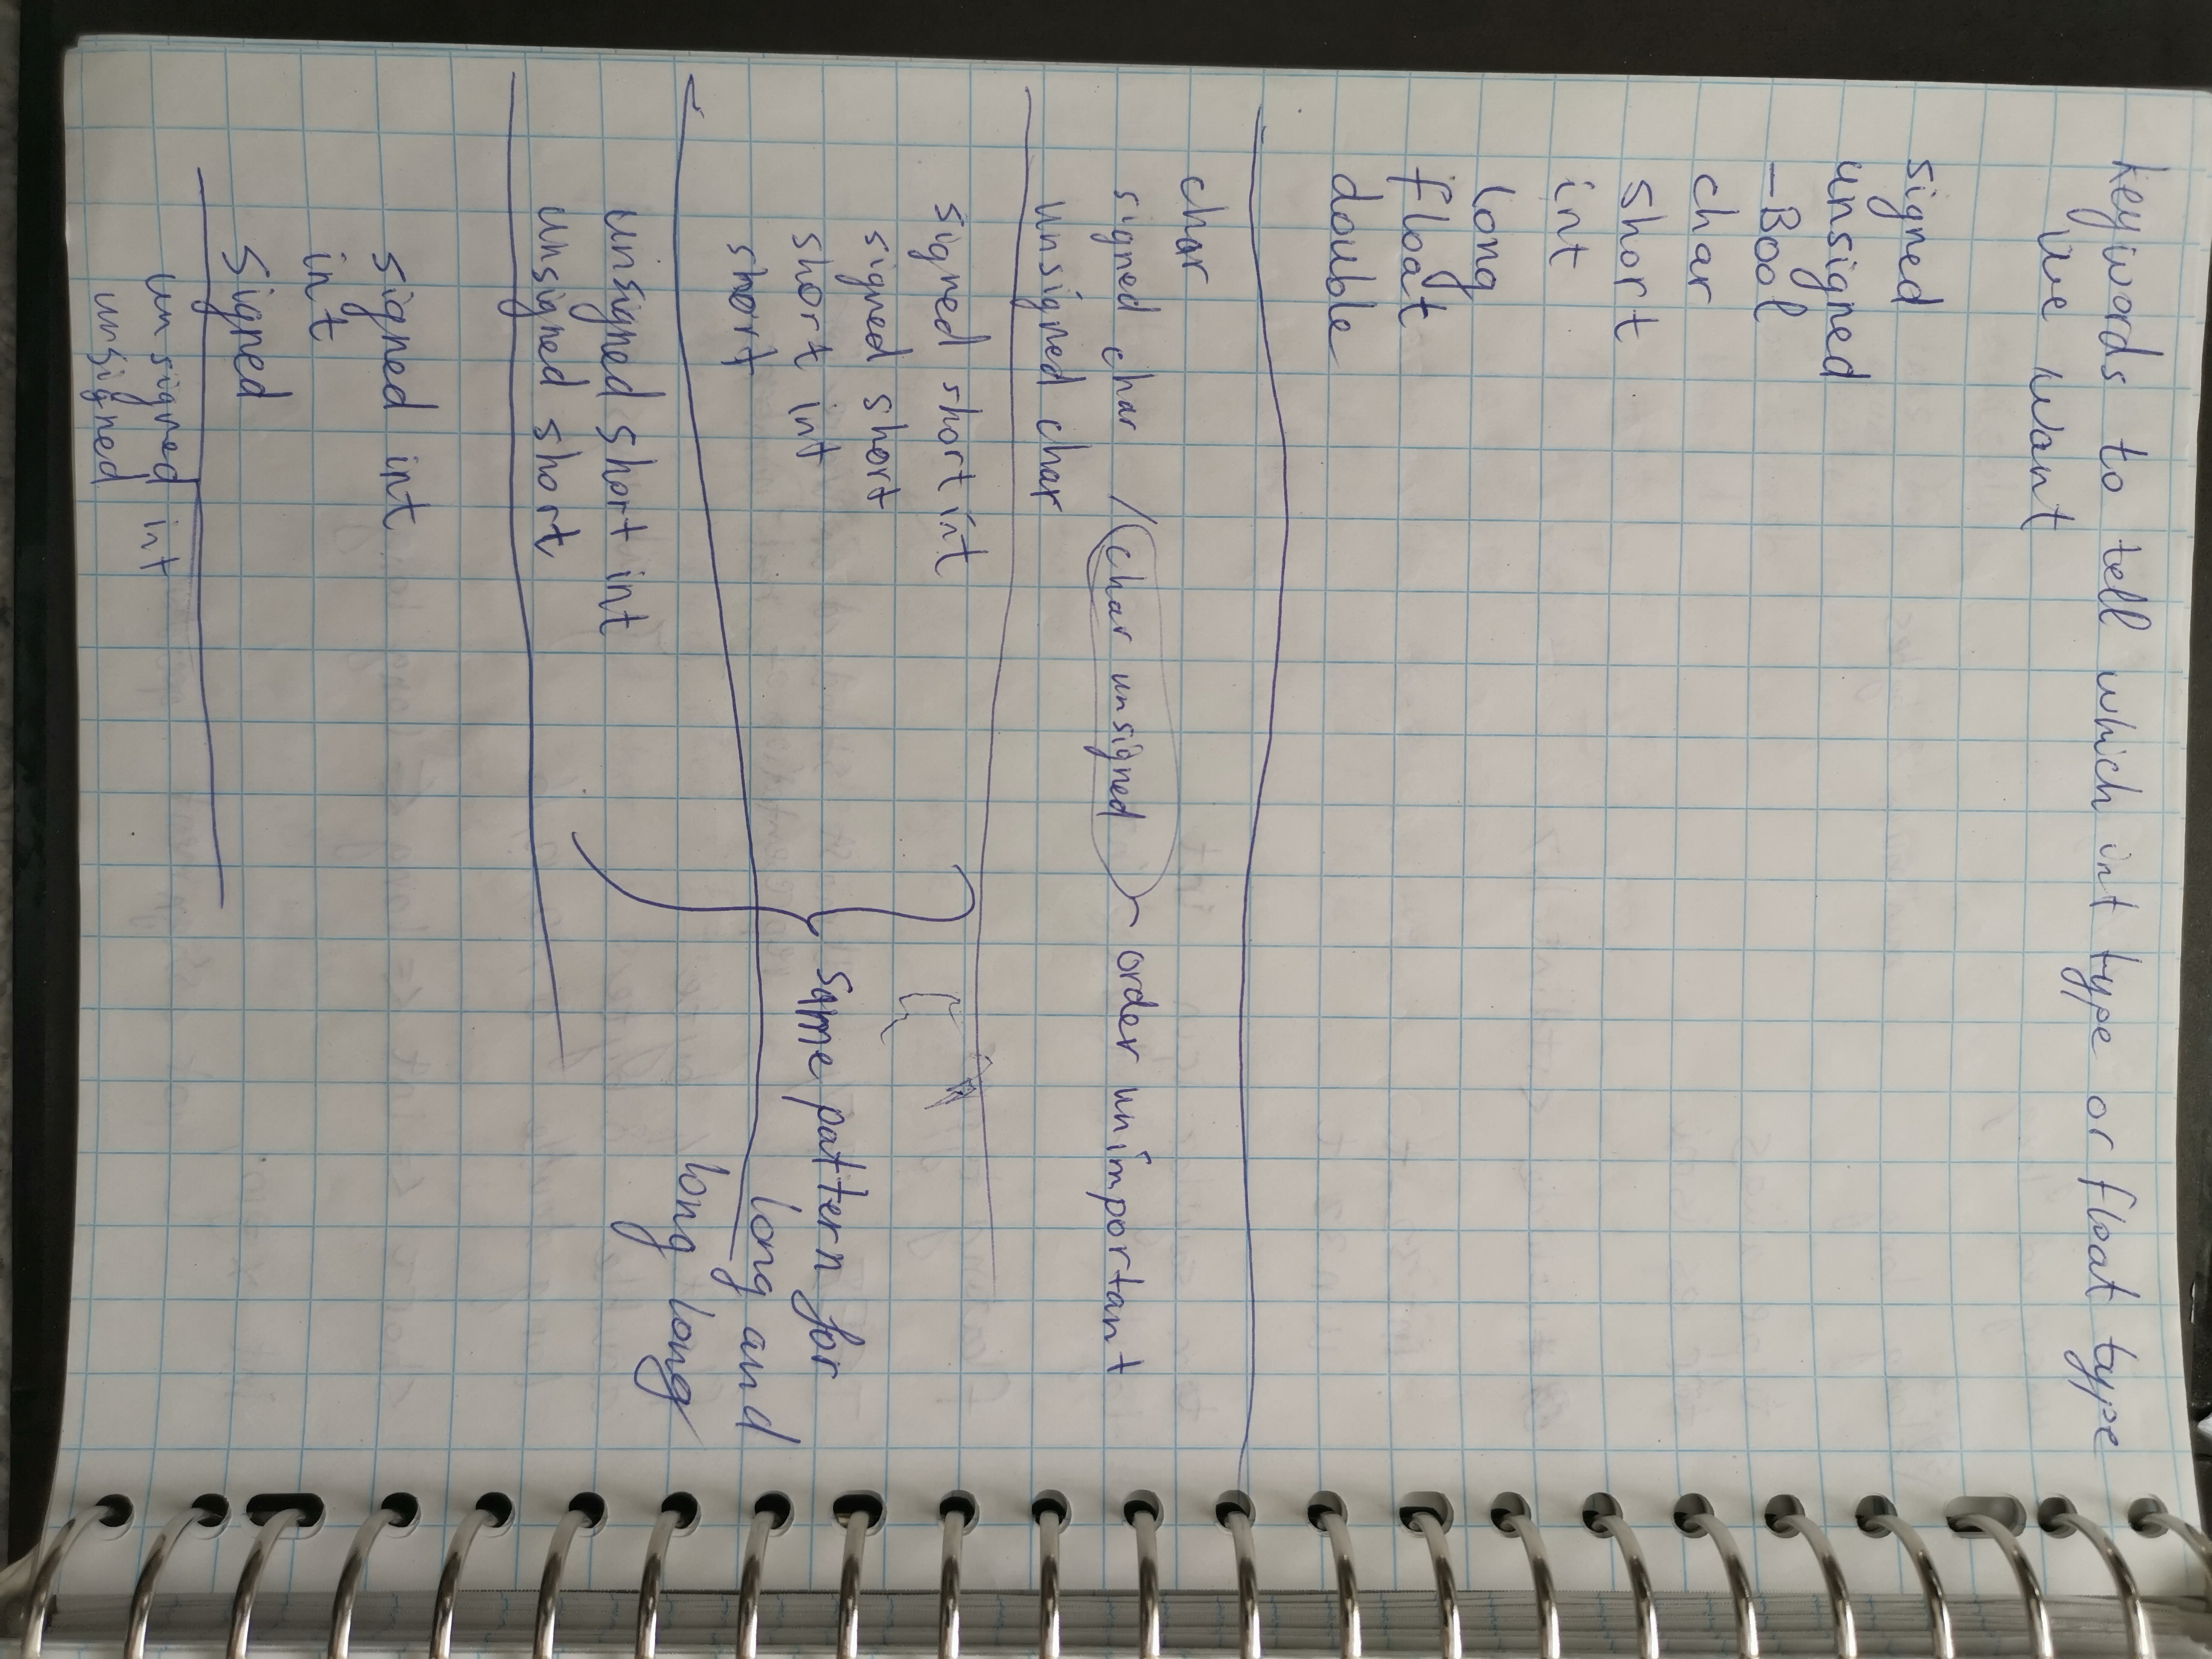 keywords to tell which int type or float type
we want
signed
unsigned
_Bool
char
short
int
long
float
double
char
signed char / char unsigned - order unimportant
unsigned char
signed short int
signed short
short int
short
same pattern for
long and
long long
unsigned short int
unsigned short
signed int
int
signed
unsigned int
unsigned